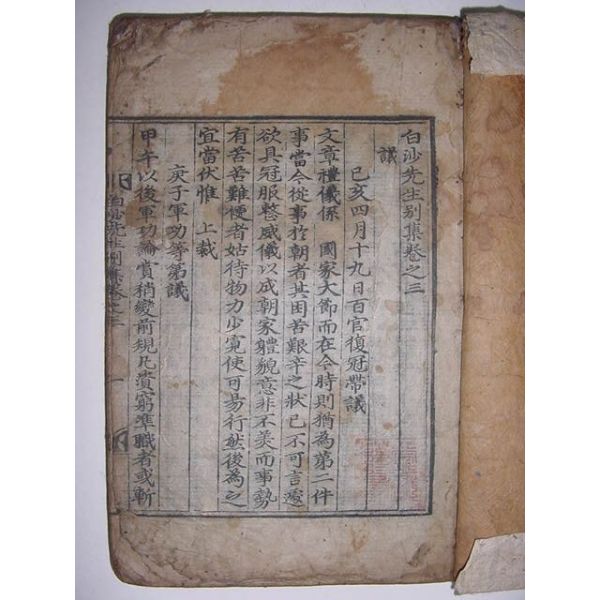 白沙先生別集卷之三
議
己亥四月十九日百官復冠帶議
文章禮儀係 國家大節而在今時則猶為第二件
事當今從事於朝者其困苦艱辛之狀已不可言遽
欲具冠服整威儀以成朝家體貌意非不美而事勢
有苦苦難便者姑待物力少寬使可易行然後為之
宜當伏惟 上裁
庚子軍功等第議
甲午以後軍功論賞稍變前規凡賞窮準職者或斬
白沙先生別集卷之三 一